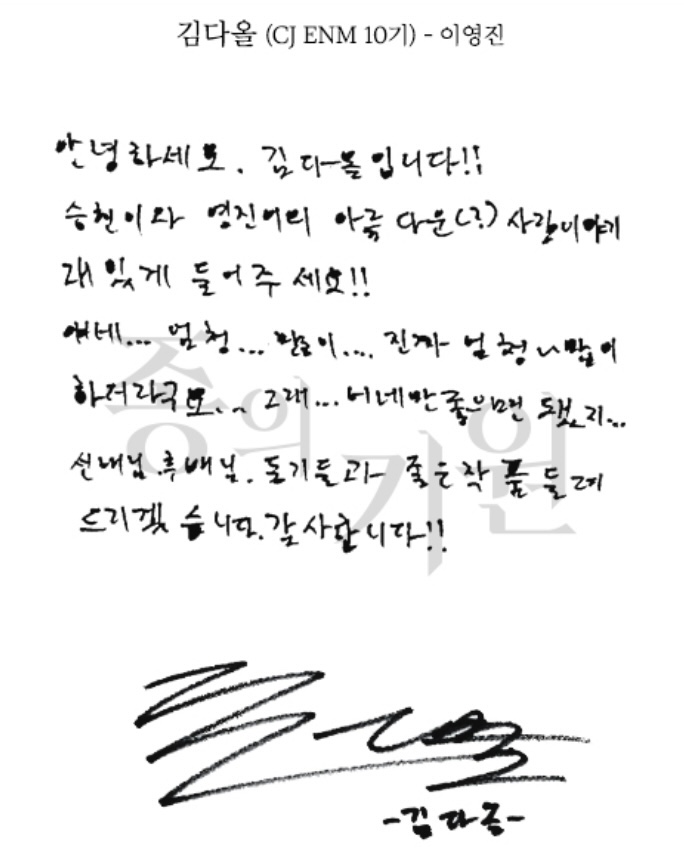 김다올 (CJ ENM 10기) - 이영진
안녕하세요. 김다올입니다!!
승현이와 영진이의 아름다운(?) 사랑이야기
재밌게 들어주세요!!
얘네... 엄청... 많이... 진짜 엄청나 많이
하더라구요... 그래... 너네만 좋으면 됐지...
선배님, 후배님, 동기들과 좋은 작품 들려
드리겠습니다. 감사합니다!!
증의 기원
-김다올-